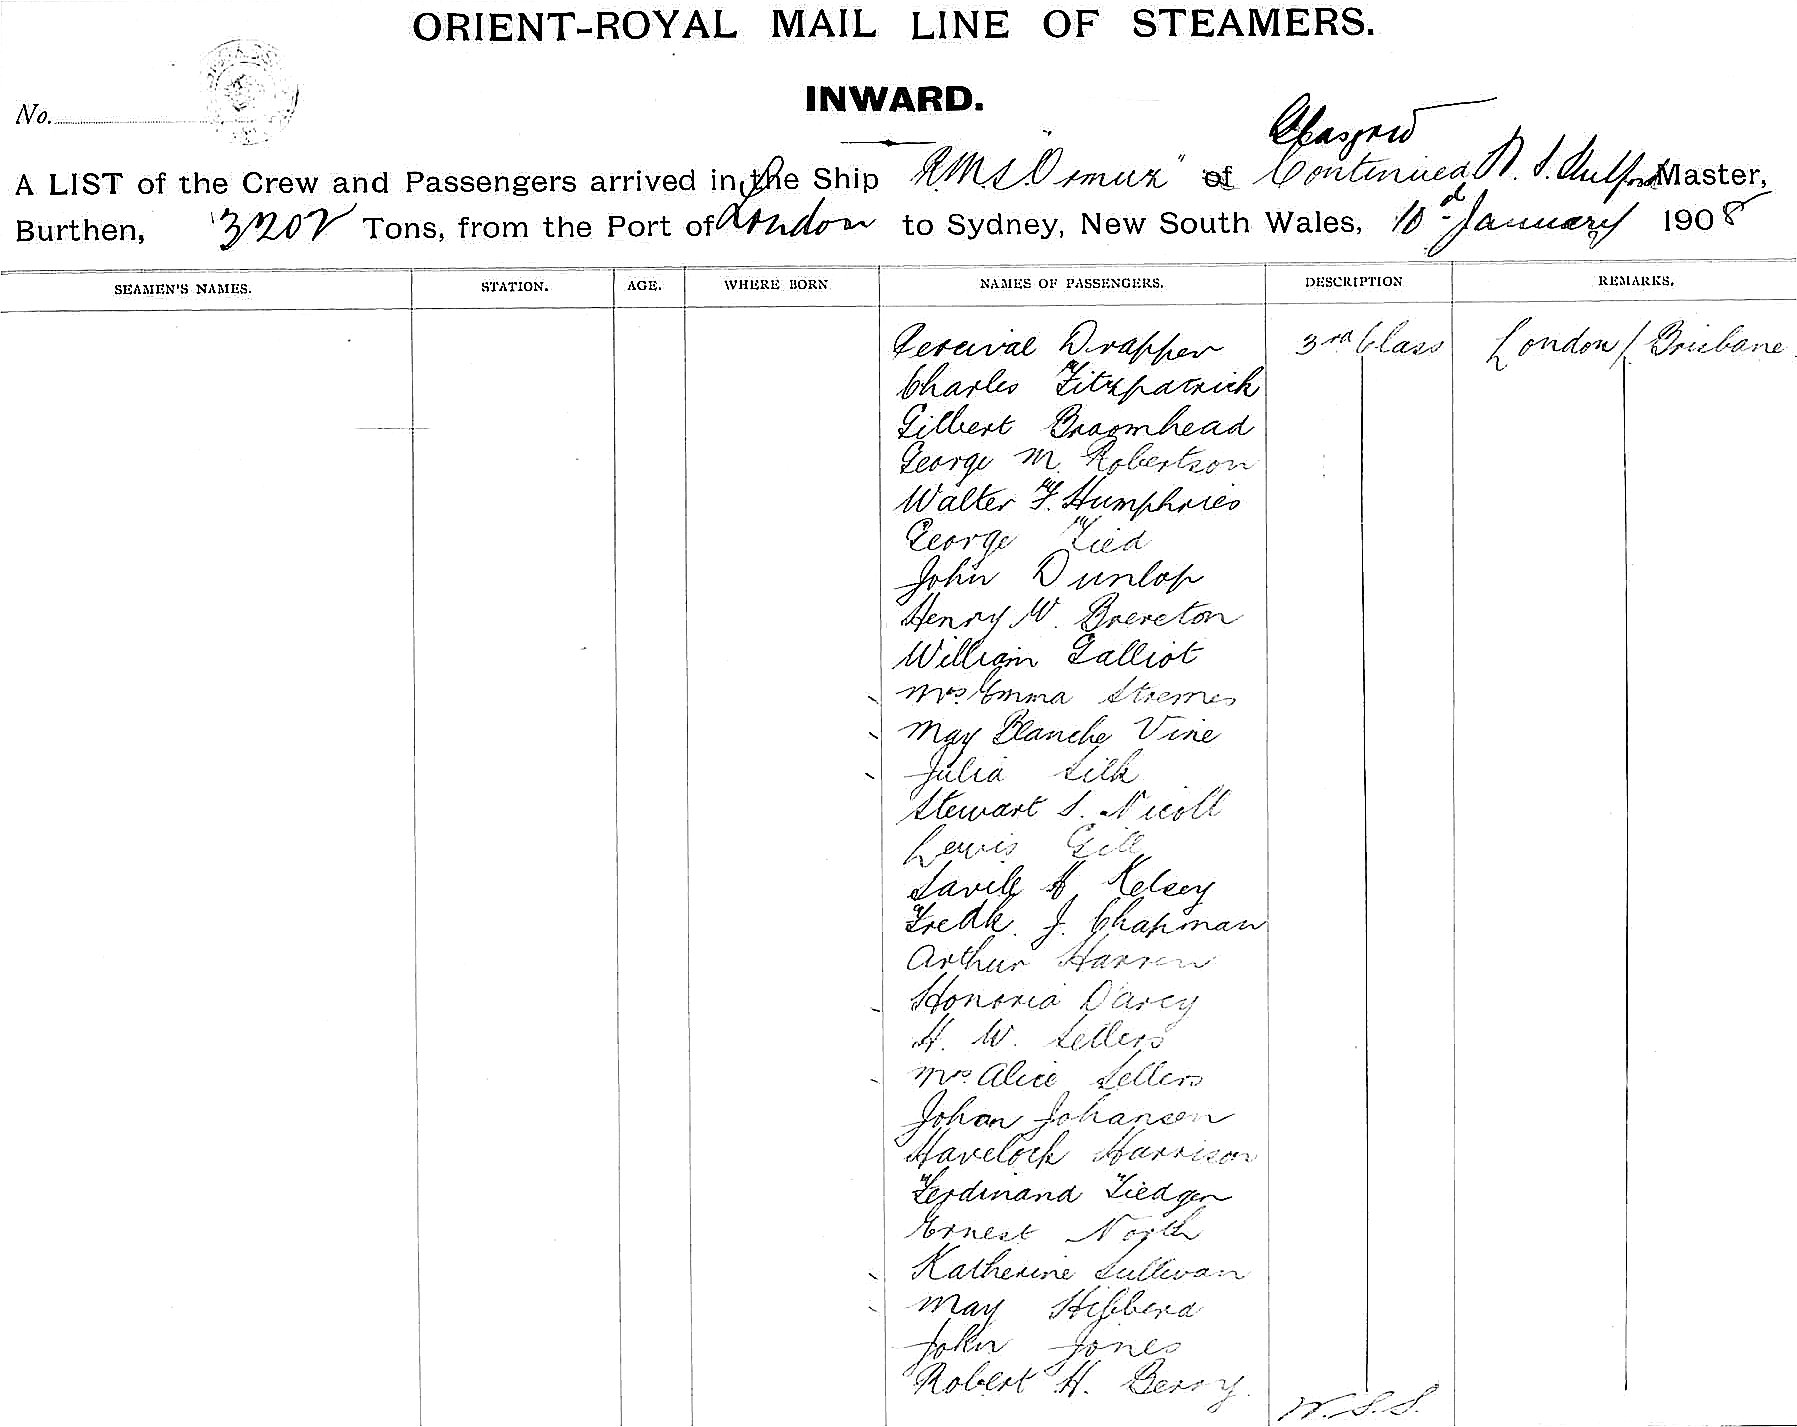 ORIENT-ROYAL MAIL LINE OF STEAMERS.
INWARD.
No.
Glasgow
A LIST of the Crew and Passengers arrived in the Ship R.M.S. "Ormuz" of Continued Master,
Burthen, 3202 Tons, from the Port of London to Sydney, New South Wales, 10th January 1908
SEAMEN'S NAMES. STATION. AGE. WHERE BORN NAMES OF PASSENGERS. DESCRIPTION REMARKS.
Percival Drapper 3rd Class London / Brisbane
Charles Fitzpatrick
Gilbert Broomhead
George M. Robertson
Walter F. Humphries
George Fied
John Dunlop
Henry W. Brereton
William Galliot
Mrs. Emma Stremes
May Blanche Vine
Julia Silk
Stewart S. Nicoll
Lewis Gill
Savile H. Kelsey
Fredk. J. Chapman
Arthur Harren
Honoria D'Arcy
H. W. Sellers
Mrs. Alice Sellers
Johan Johansen
Havelock Harrison
Ferdinand Fiedgen
Ernest North
Katherine Sullivan
May Hibberd
John Jones
Robert H. Berry.
W.S.S.